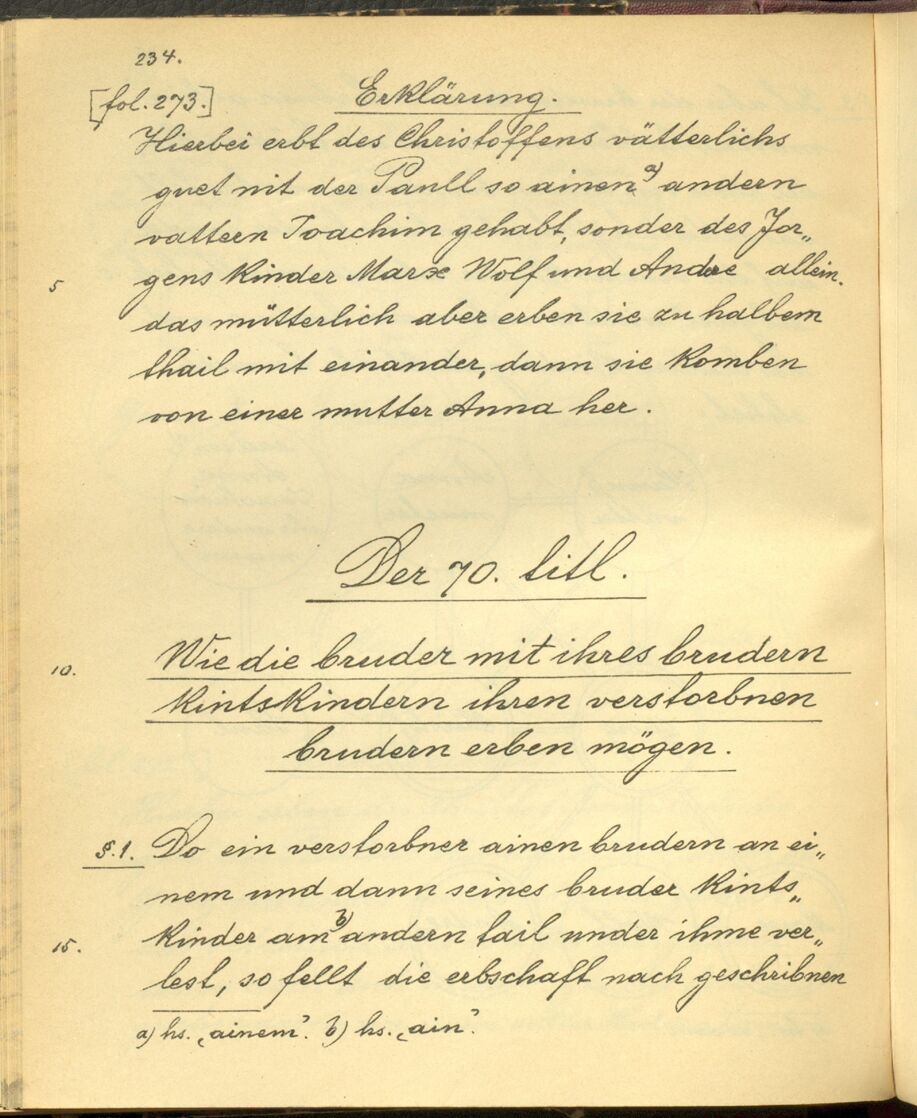 234.
[fol. 273.] Erklärung.
Hierbei erbt des Christoffens vätterlichs
guet nit der Paull so ainen a) andern
vattern Joachim gehabt, sonder des Jor„
5 gens kinder Marx Wolf und Andre allein.
das mütterlich aber erben sie zu halbem
thail mit einander, dann sie komben
von einer mutter Anna her.
Der 70. titl.
10. Wie die bruder mit ihres brudern
kintskindern ihren verstorbnen
brudern erben mögen.
§. 1. Do ein verstorbner ainen brudern an ei„
nem und dann seines bruder kints„
15. kinder am b) andern tail under ihme ver„
lest, so fellt die erbschaft nach geschribnen
a) hs. „ainem”. b) hs. „ain”.